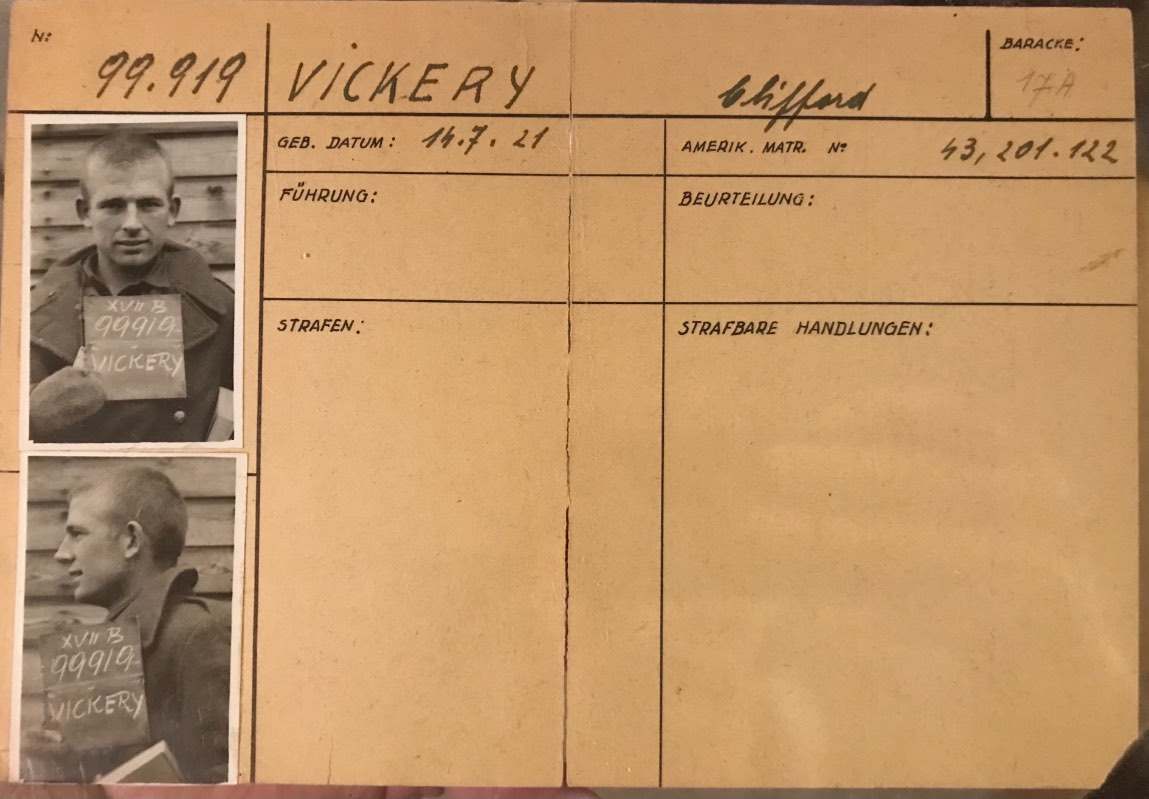 Nº
99.919
VICKERY Clifford
BARACKE:
17A
GEB. DATUM: 14.7.21
AMERIK. MATR. Nº 43,201.122
FÜHRUNG:
BEURTEILUNG:
STRAFEN:
STRAFBARE HANDLUNGEN:
XVII B
99919
VICKERY
XVII B
99919
VICKERY